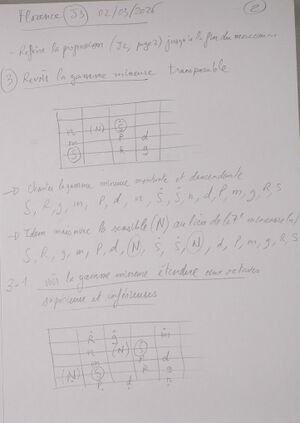 Florence (J3) 02/03/2026 (2)
- Refaire la progression (J2, page 2) jusqu'à la fin du morceau
3) Revoir la gamme mineure transposable
n (N) Ṡ
m P d
Ṣ R g
→ Chanter la gamme mineure montante et descendante
S, R, g, m, P, d, n, Ṡ, Ṡ, n, d, P, m, g, R, S
→ Idem mais avec la sensible (N) au lieu de la 7e mineure (n)
S, R, g, m, P, d, (N), Ṡ, Ṡ, (N), d, P, m, g, R, S
3-1 la gamme mineure étendue aux octaves
supérieure et inférieures
Ṙ ġ ṁ
n (N) Ṡ
m P d
(Ṇ) S R g
P d n